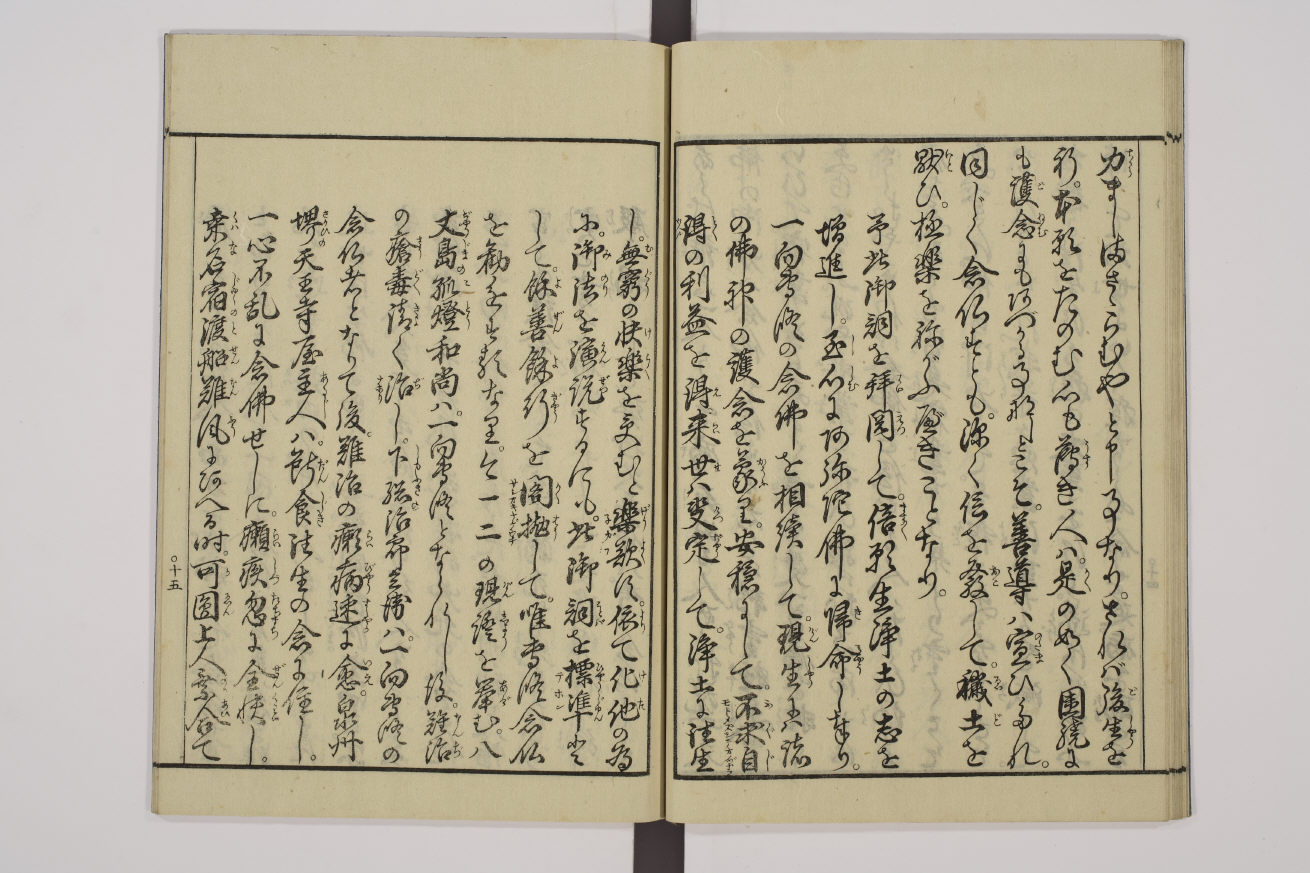 力ましまさこらむやと申す事なり。されバ後生を
祈。本願をたのむ心も薄き人ハ。是のめく圍繞に
も護念にもあづかる事なしとこそ。善導ハ宣ひたれ。
同じく念仏すとも。深く信を致して。穢土を
厭ひ。極樂を祢がふべきことなり。
予此御詞を拝閲して。倍願生浄土の志を
増進し。至心に阿弥陀佛に帰命し奉り。
一向専修の念佛を相續して。現生にハ諸
の佛神の護念を蒙り。安穏にして。不求自
得の利益を得。来世ハ決定して。浄土に往生
し。無窮の快樂を受むと樂欲す。依て化他の為
に。御法を演説するにも。此御詞を標準と
して。餘善餘行を閣抛して。唯専修念仏
を勧を定頼なり。今一二の現證を挙む。八
丈島孤燈和尚ハ。一向専修となられし后。難治
の瘡毒清く治し。下総治帝ハ。一向専修の
念仏者となりて後。難治の癩病速に愈。泉州
堺天王寺屋主人ハ。断食往生の念に住し。
一心不乱に念佛せしに。癩疾忽に全快し。
桑名宿渡船難風にあへる時。可圓上人乗合て
○十五